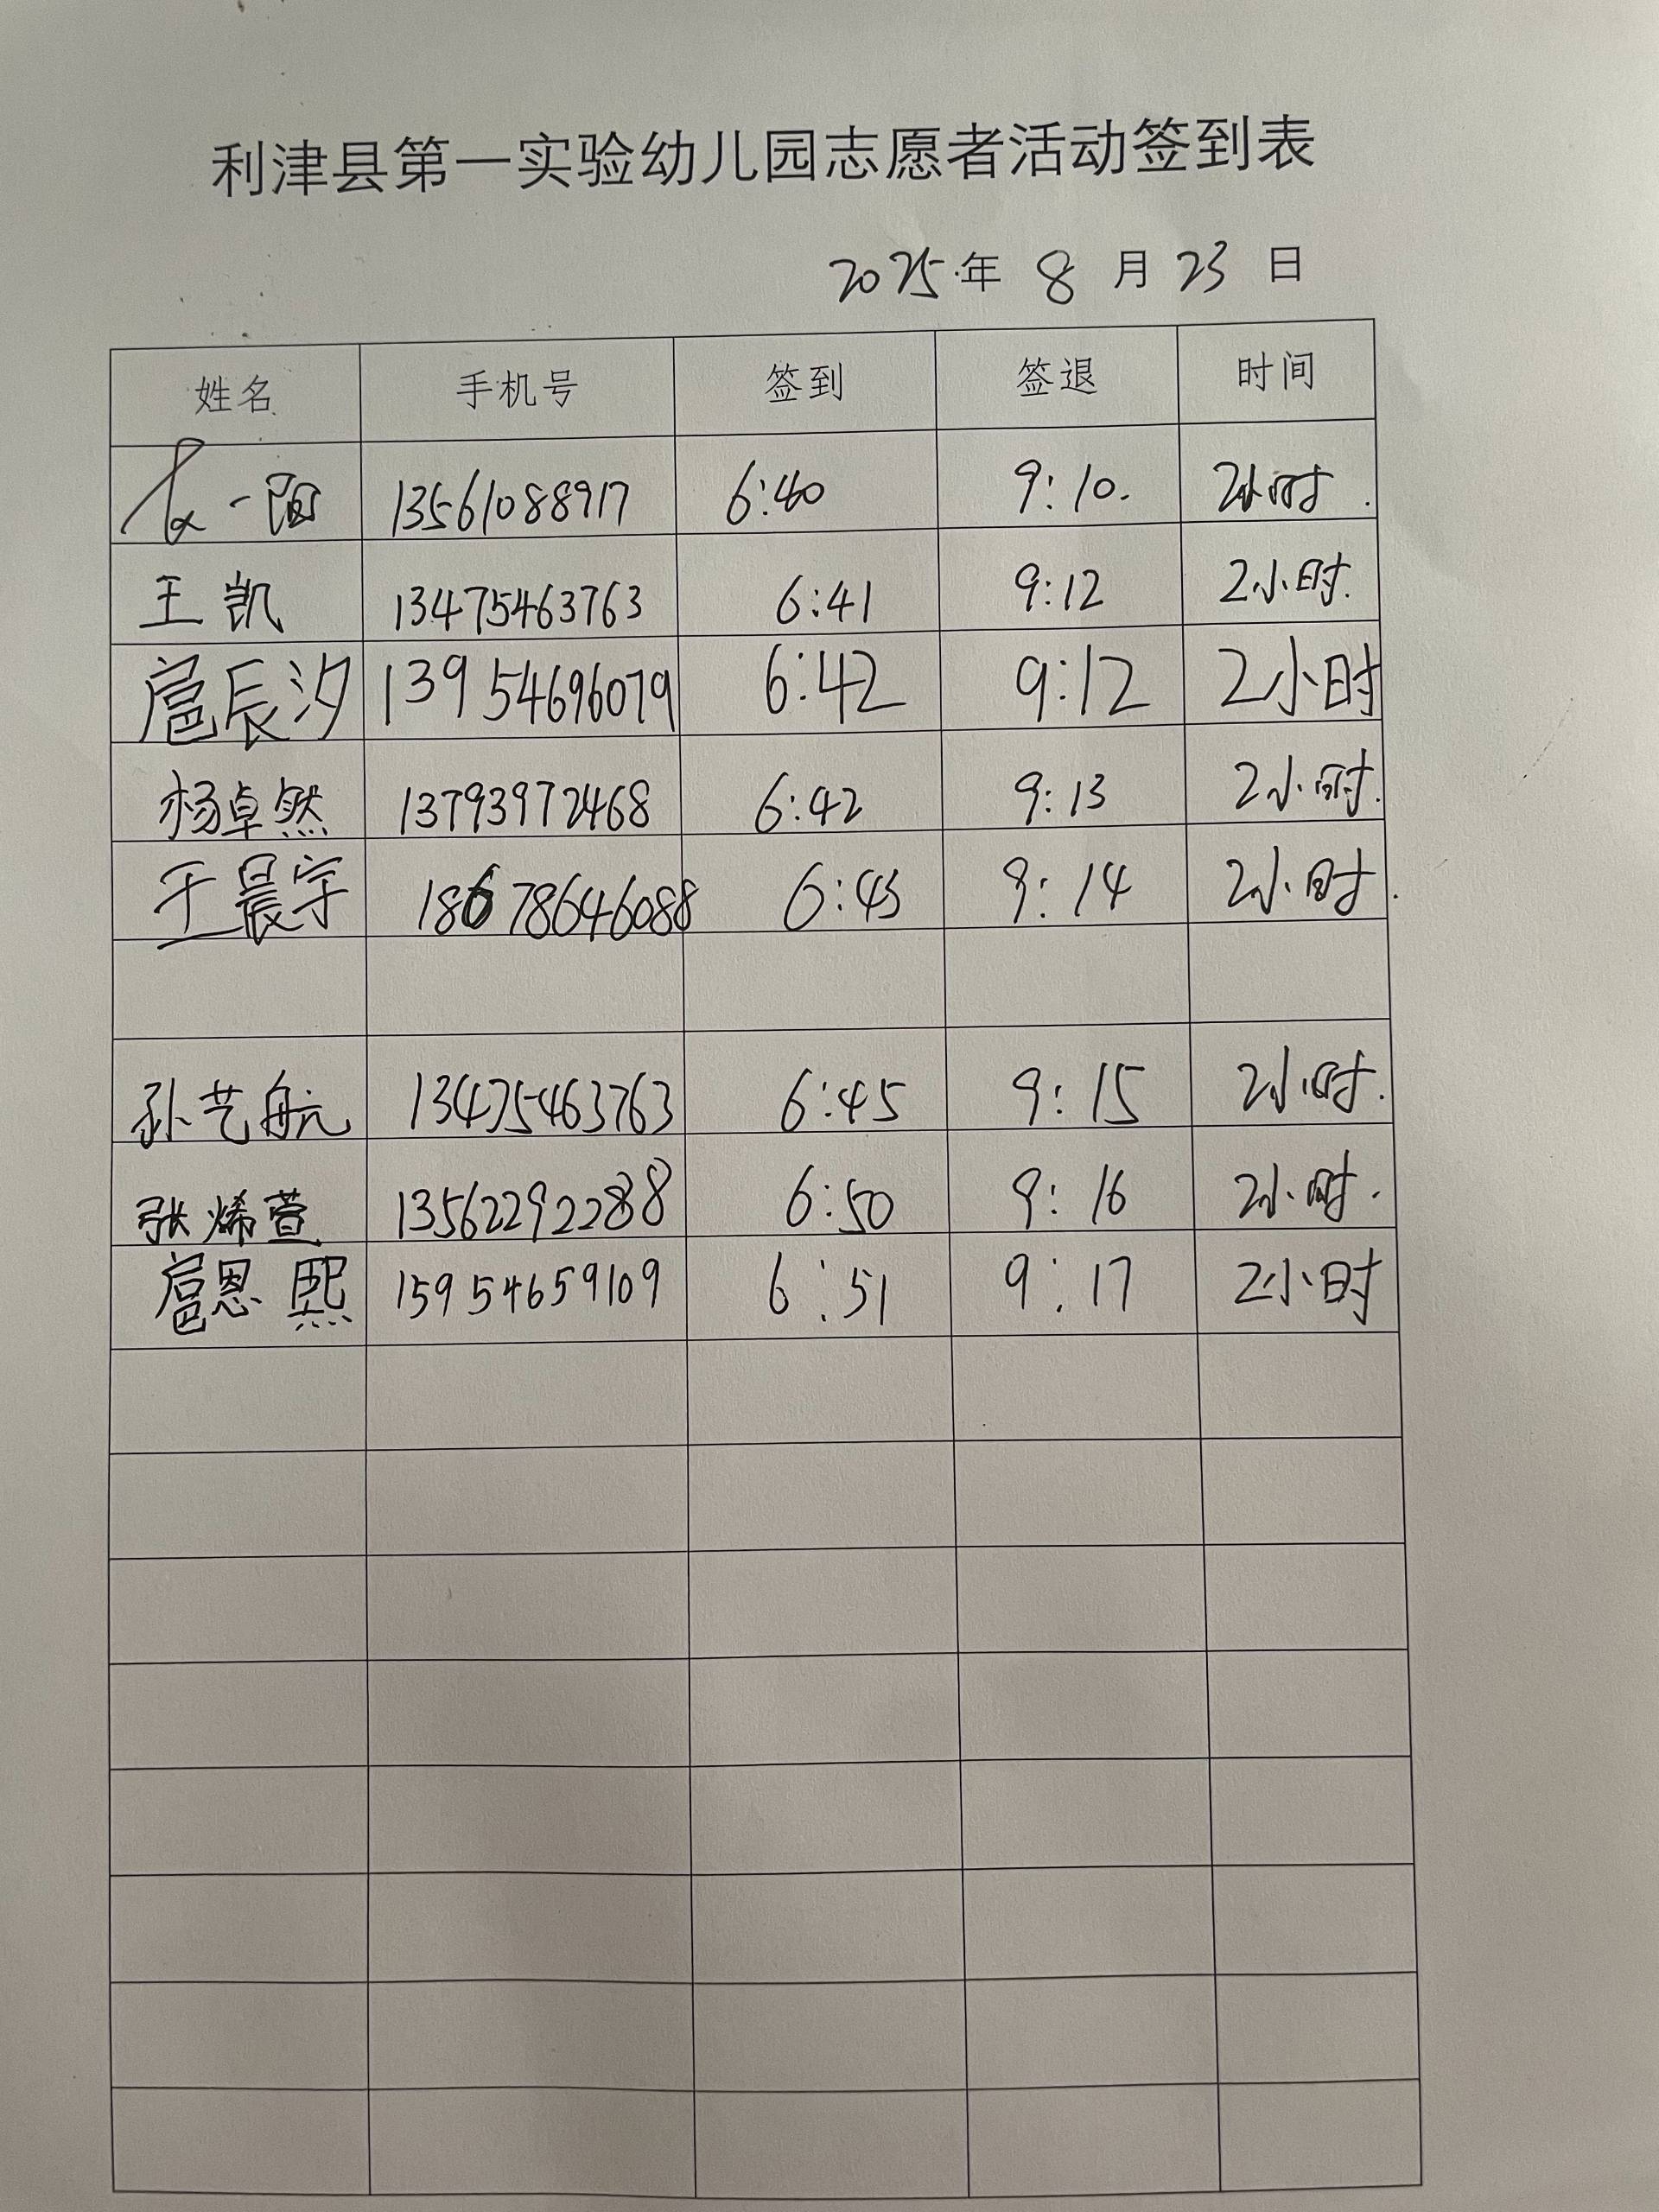 利津县第一实验幼儿园志愿者活动签到表
2025年 8 月 23 日
姓名 手机号 签到 签退 时间
一阳 13561088917 6:40 9:10. 2小时.
王凯 13475463763 6:41 9:12 2小时.
扈辰汐 13954696079 6:42 9:12 2小时
杨卓然 13793972468 6:42 9:13 2小时.
王晨宇 18678646088 6:43 9:14 2小时.
孙艺航 13475463763 6:45 9:15 2小时.
张烯萱 13562292288 6:50 9:16 2小时.
扈恩熙 15954659109 6:51 9:17 2小时